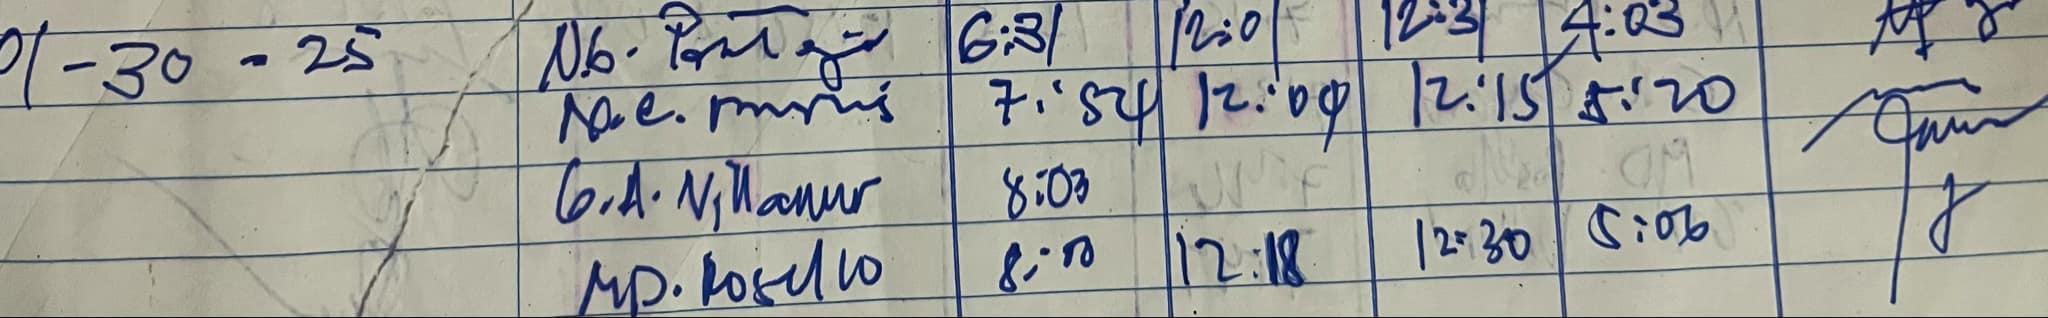 01-30-25 N.G. 6:31 12:01 12:31 4:03
7:54 12:09 12:15 5:20
G.A. Villanueva 8:03
MD. Rosello 8:00 12:18 12:30 5:06